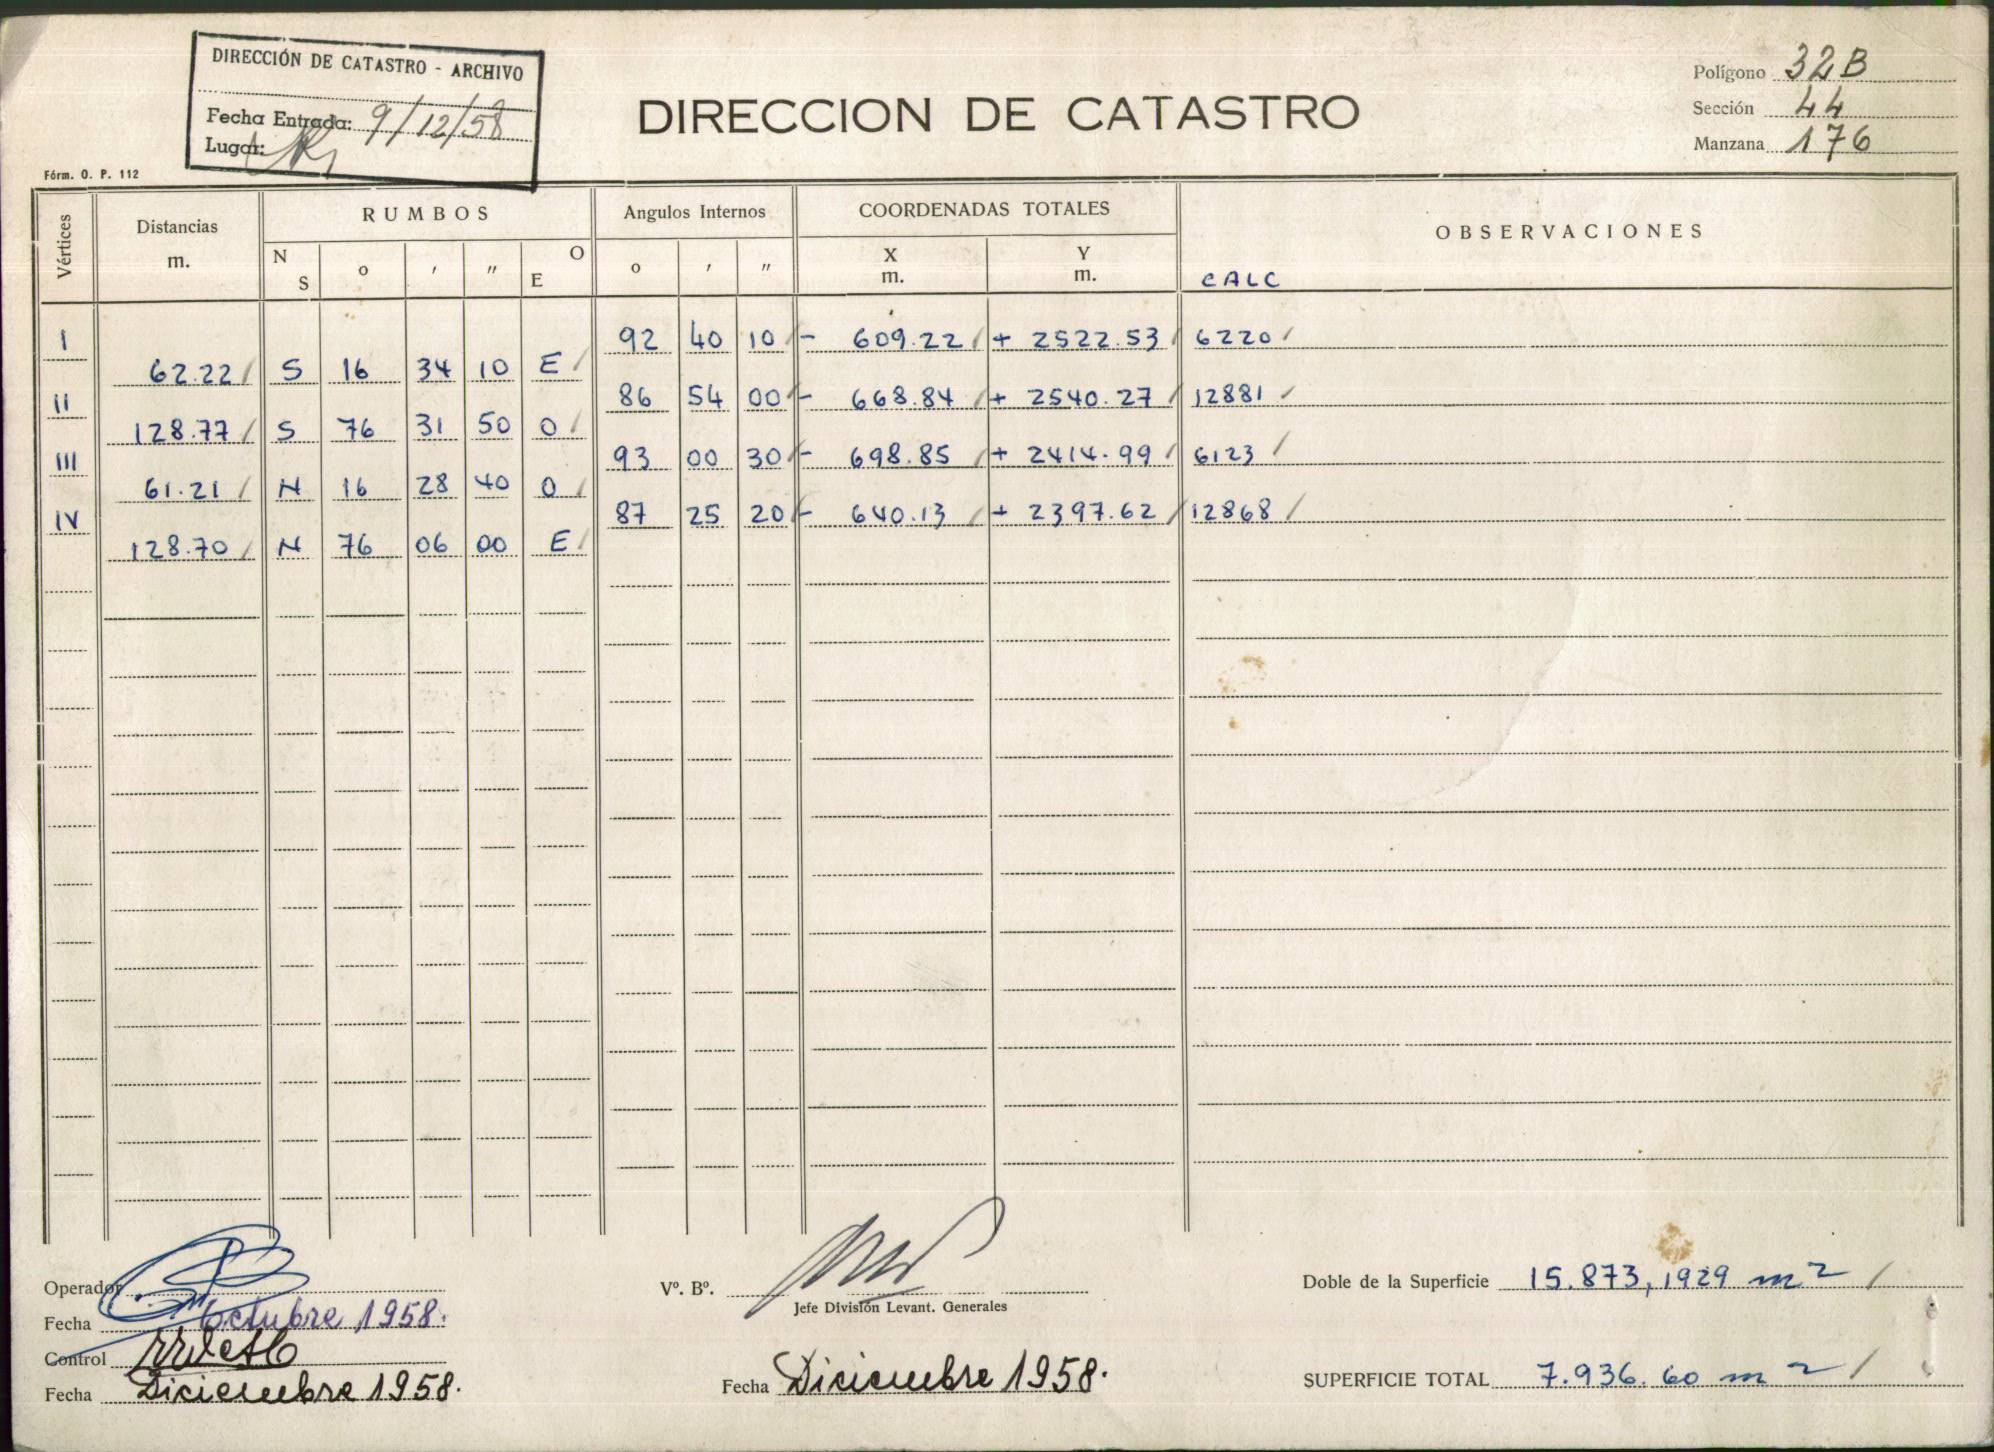 DIRECCIÓN DE CATASTRO - ARCHIVO
Fecha Entrada: 9/12/58
Lugar:
DIRECCION DE CATASTRO
Polígono 32B
Sección 44
Manzana 176
Fórm. O. P. 112
Vértices Distancias m. RUMBOS Angulos Internos COORDENADAS TOTALES OBSERVACIONES
N S o ' " O E o ' " X m. Y m. CALC
I 92 40 10 - 609.22 + 2522.53 6220
62.22 S 16 34 10 E
II 86 54 00 - 668.84 + 2540.27 12881
128.77 S 76 31 50 O
III 93 00 30 - 698.85 + 2414.99 6123
61.21 N 16 28 40 O
IV 87 25 20 - 640.13 + 2397.62 12868
128.70 N 76 06 00 E
Operador
Fecha Octubre 1958.
Control
Fecha Diciembre 1958.
Vº. Bº.
Jefe División Levant. Generales
Fecha Diciembre 1958.
Doble de la Superficie 15.873,1929 m2
SUPERFICIE TOTAL 7.936.60 m2